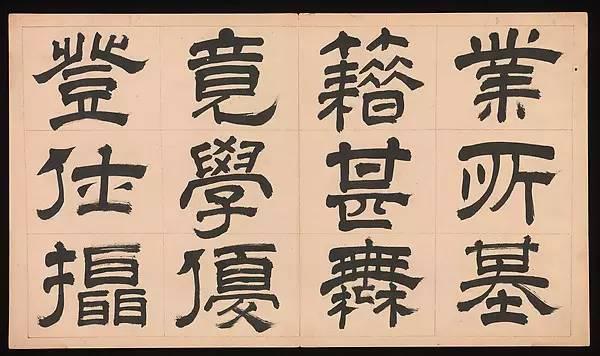 業所基
籍甚無
竟學優
登仕攝